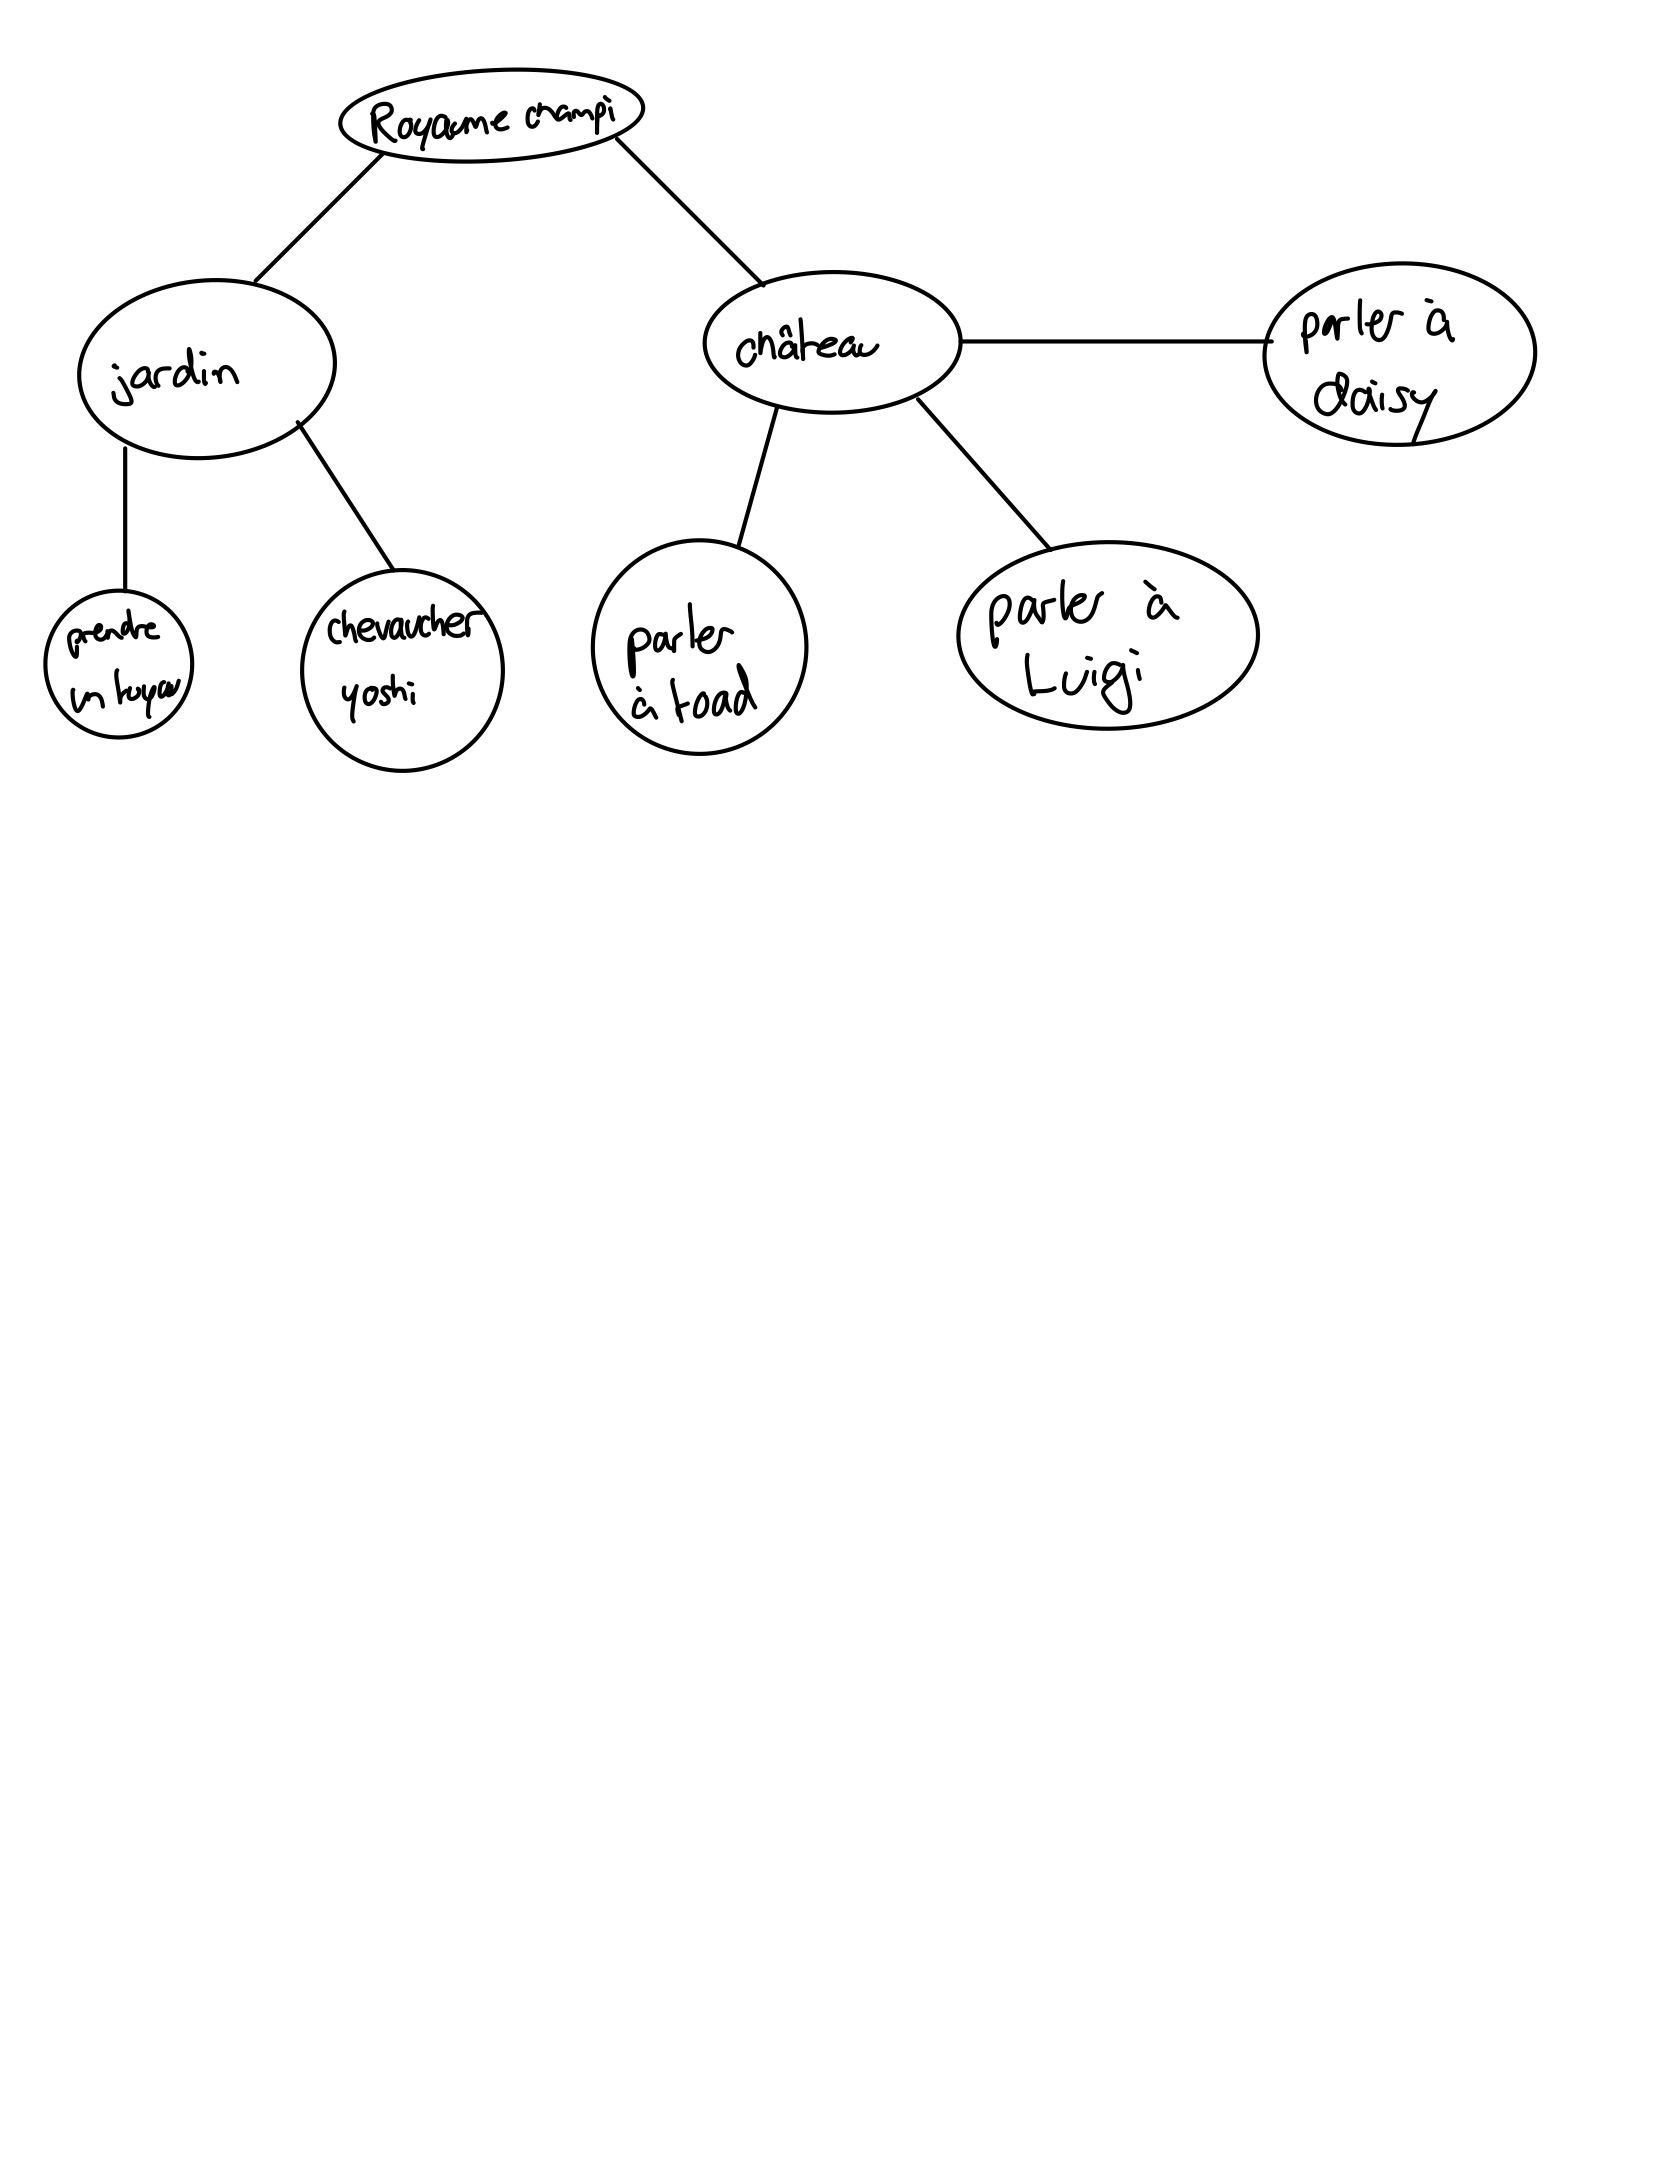 Royaume champi
jardin
château
parler à
daisy
prendre
un tuyau
chevaucher
yoshi
parler
à toad
parler à
Luigi